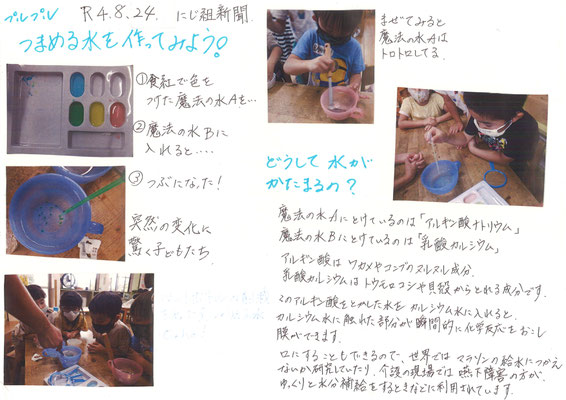 プルプル R4.8.24. にじ組新聞.
つまめる水を作ってみよう!
①食紅で色を
つけた魔法の水Aを…
②魔法の水Bに
入れると….
③つぶになった!
突然の変化に
驚く子どもたち.
まぜてみると
魔法の水Aは
トロトロしてる.
どうして 水が
かたまるの?
魔法の水Aにとけているのは「アルギン酸ナトリウム」
魔法の水Bにとけているのは「乳酸カルシウム」
アルギン酸は ワカメやコンブのヌルヌル成分.
乳酸カルシウムはトウモロコシや貝殻からとれる成分です.
このアルギン酸をとかした水を カルシウム水に入れると.
カルシウム水に 触れた部分が瞬間的に化学反応をおこし
膜ができます.
口にすることもできるので、世界では マラソンの給水につかえ
ないか研究していたり. 介護の現場では 嚥下障害の方が.
ゆっくりと水分補給をするときなどに利用されています.